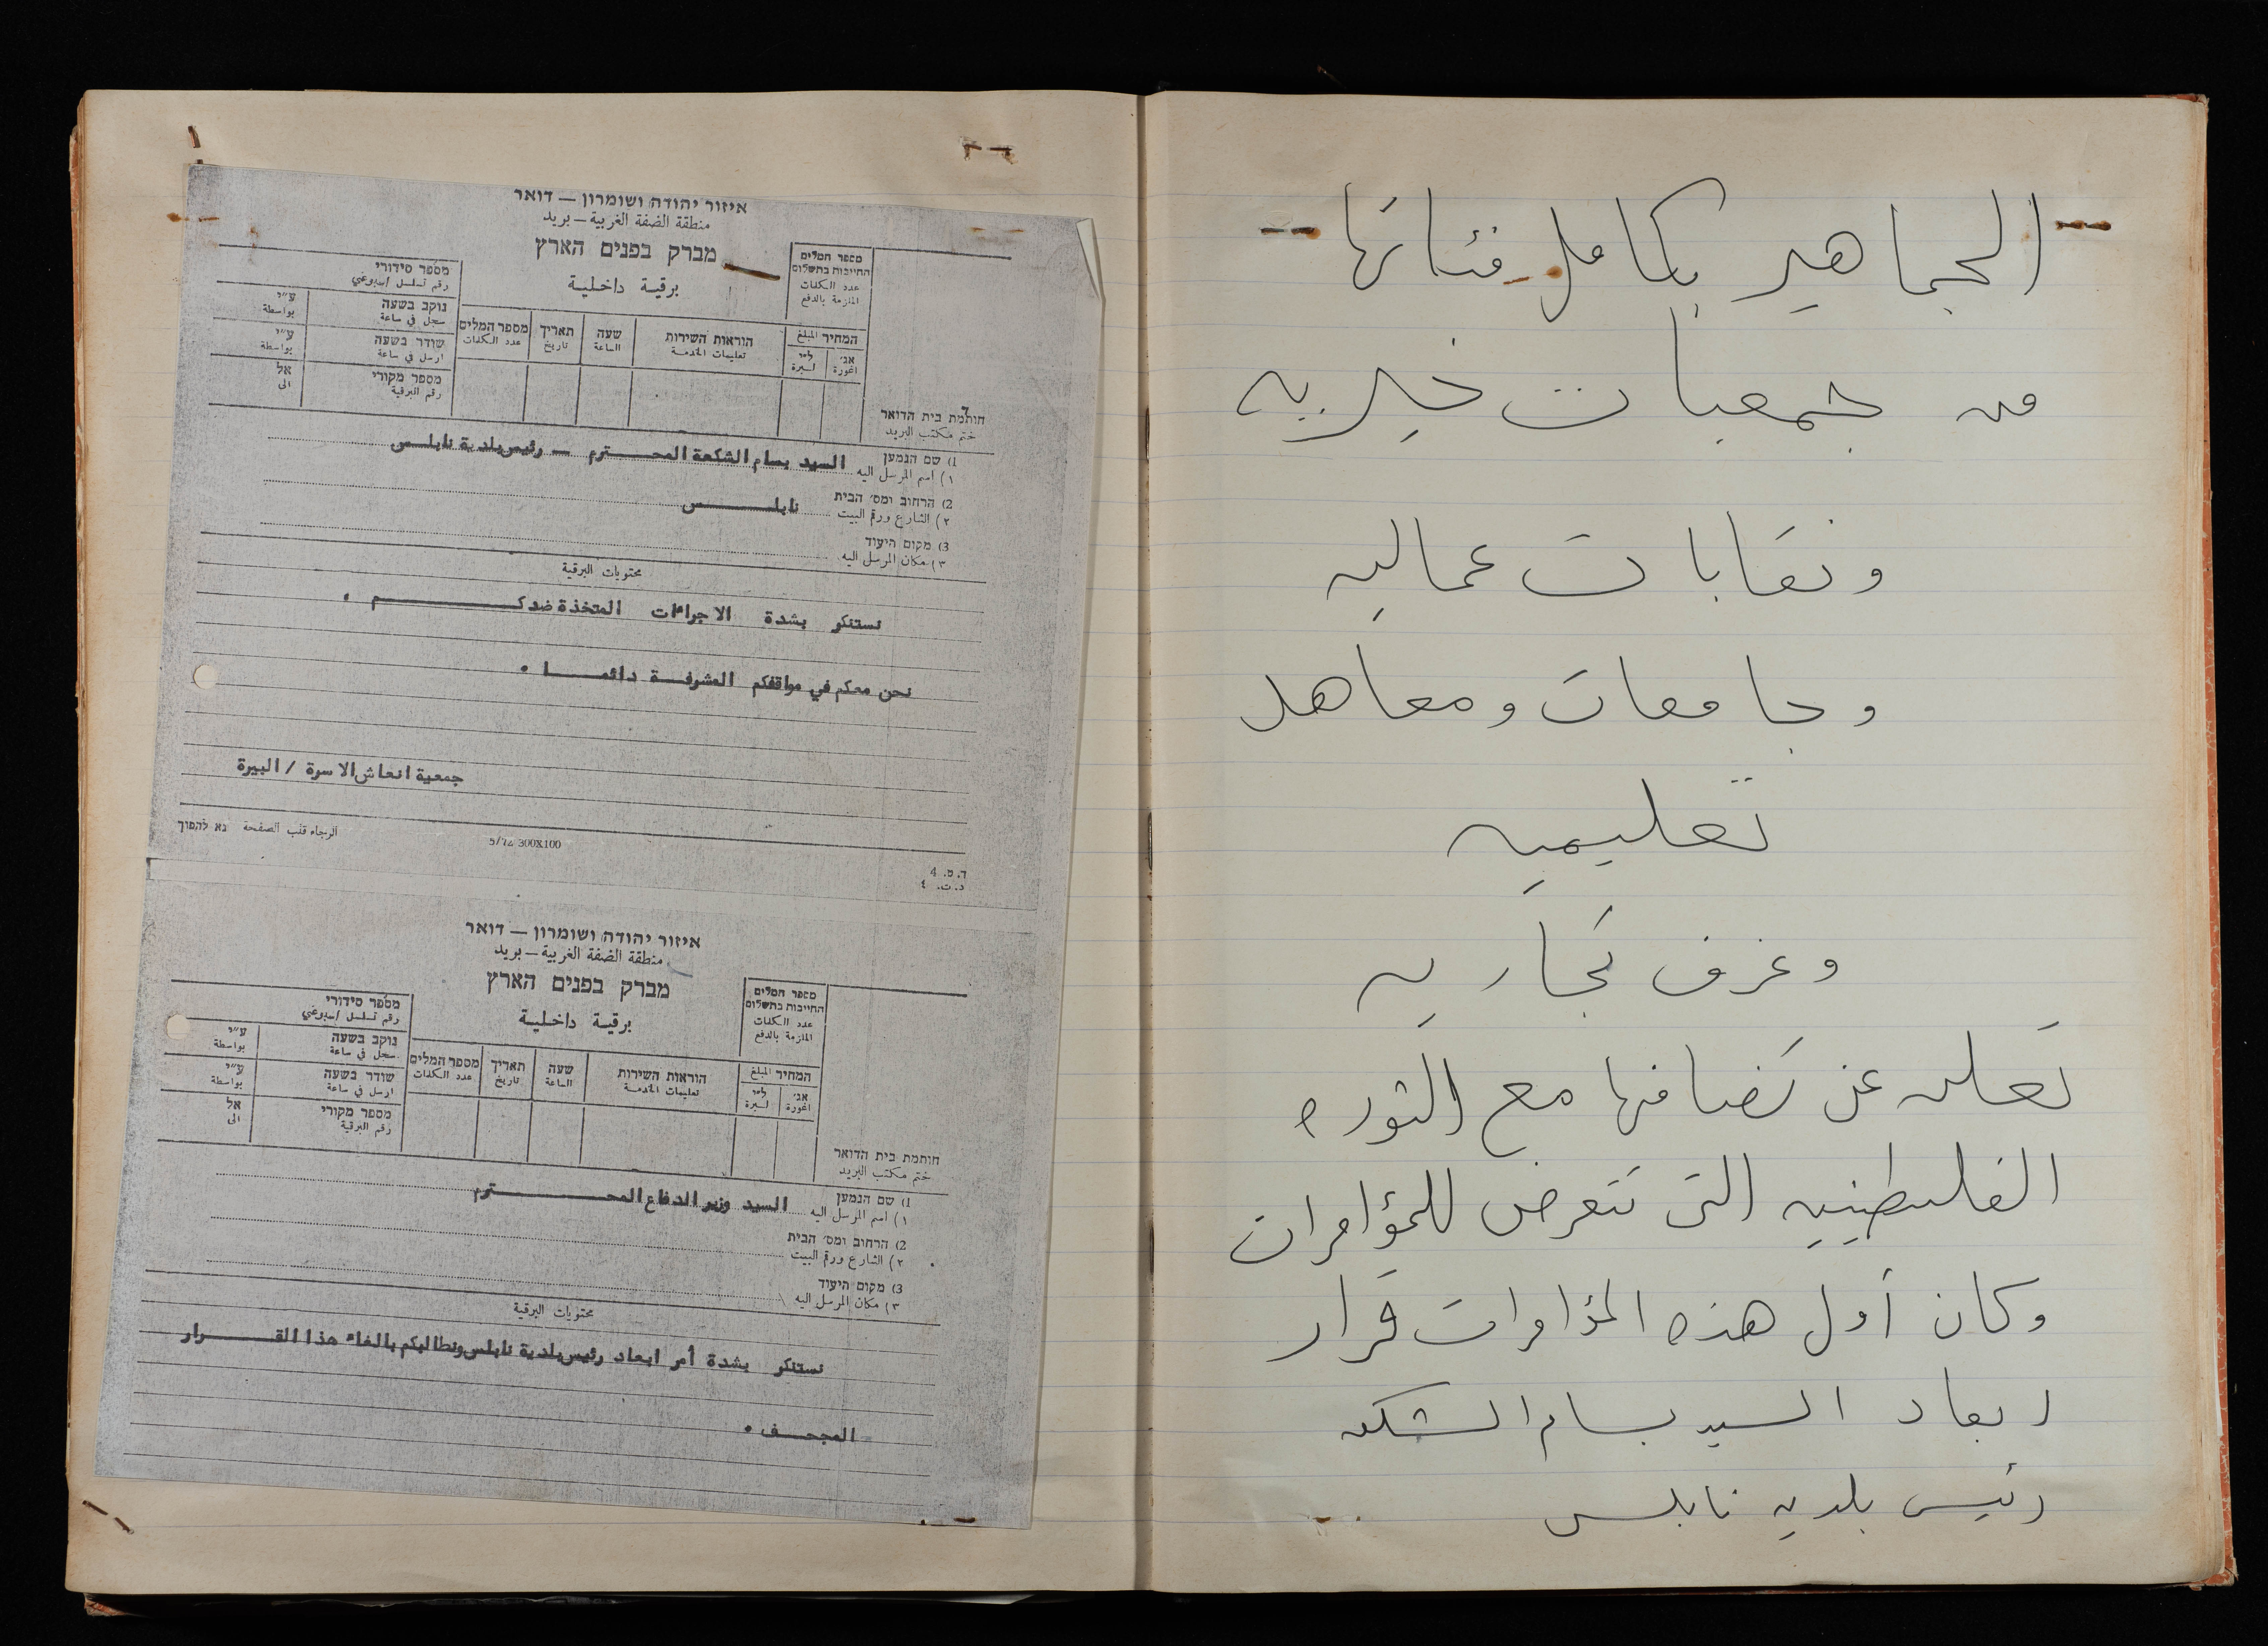 איזור יהודה ושומרון — דואר
منطقة الضفة الغربية — بريد
מברק בפנים הארץ
برقية داخلية
מספר המלים
החייבות בתשלום
عدد الكلمات
الملزمة بالدفع
מספר סידורי
رقم تسلسل اسبوعي
נוקב בשעה
سجل في ساعة
ע"י
بواسطة
שודר בשעה
ارسل في ساعة
ע"י
بواسطة
מספר מקורי
رقم البرقية
אל
الى
המחיר المبلغ
אג' اغورة
ל"י ليرة
הוראות השירות
تعليمات الخدمة
שעה
الساعة
תאריך
تاريخ
מספר המלים
عدد الكلمات
חותמת בית הדואר
ختم مكتب البريد
1) שם הנמען
١) اسم المرسل اليه
السيد بسام الشكعة المحـــترم — رئيس بلدية نابلـــس
2) הרחוב ומס' הבית
٢) الشارع ورقم البيت
نابلـــــس
3) מקום היעוד
٣) مكان المرسل اليه
محتويات البرقية
نستنكر بشدة الاجراءات المتخذة ضدكـــــــم .
نحن معكم في مواقفكم المشرفـــة دائمـــــا .
جمعية انعاش الاسرة / البيرة
الرجاء قلب الصفحة נא להפוך
5/72 300X100
ד. ט. 4
د. ت. ٤
איזור יהודה ושומרון — דואר
منطقة الضفة الغربية — بريد
מברק בפנים הארץ
برقية داخلية
מספר המלים
החייבות בתשלום
عدد الكلمات
الملزمة بالدفع
מספר סידורי
رقم تسلسل اسبوعي
נוקב בשעה
سجل في ساعة
ע"י
بواسطة
שודר בשעה
ارسل في ساعة
ע"י
بواسطة
מספר מקורי
رقم البرقية
אל
الى
המחיר المبلغ
אג' اغورة
ל"י ليرة
הוראות השירות
تعليمات الخدمة
שעה
الساعة
תאריך
تاريخ
מספר המלים
عدد الكلمات
חותמת בית הדואר
ختم مكتب البريد
1) שם הנמען
١) اسم المرسل اليه
السيد وزير الدفاع المحـــــــترم
2) הרחוב ומס' הבית
٢) الشارع ورقم البيت
3) מקום היעוד
٣) مكان المرسل اليه
محتويات البرقية
نستنكر بشدة أمر ابعاد رئيس بلدية نابلس ونطالبكم بالغاء هذا القــــرار
المجحـــف .
الجماهير بكامل فئاتها
من جمعيات خيريه
ونقابات عماليه
وجامعات ومعاهد
تعليميه
وغرف تجاريه
تعلن عن تضامنها مع الثوره
الفلسطينيه التى تتعرض للمؤامرات
وكان أول هذه المؤامرات قرار
ابعاد السيد بسام الشكعه
رئيس بلديه نابلس